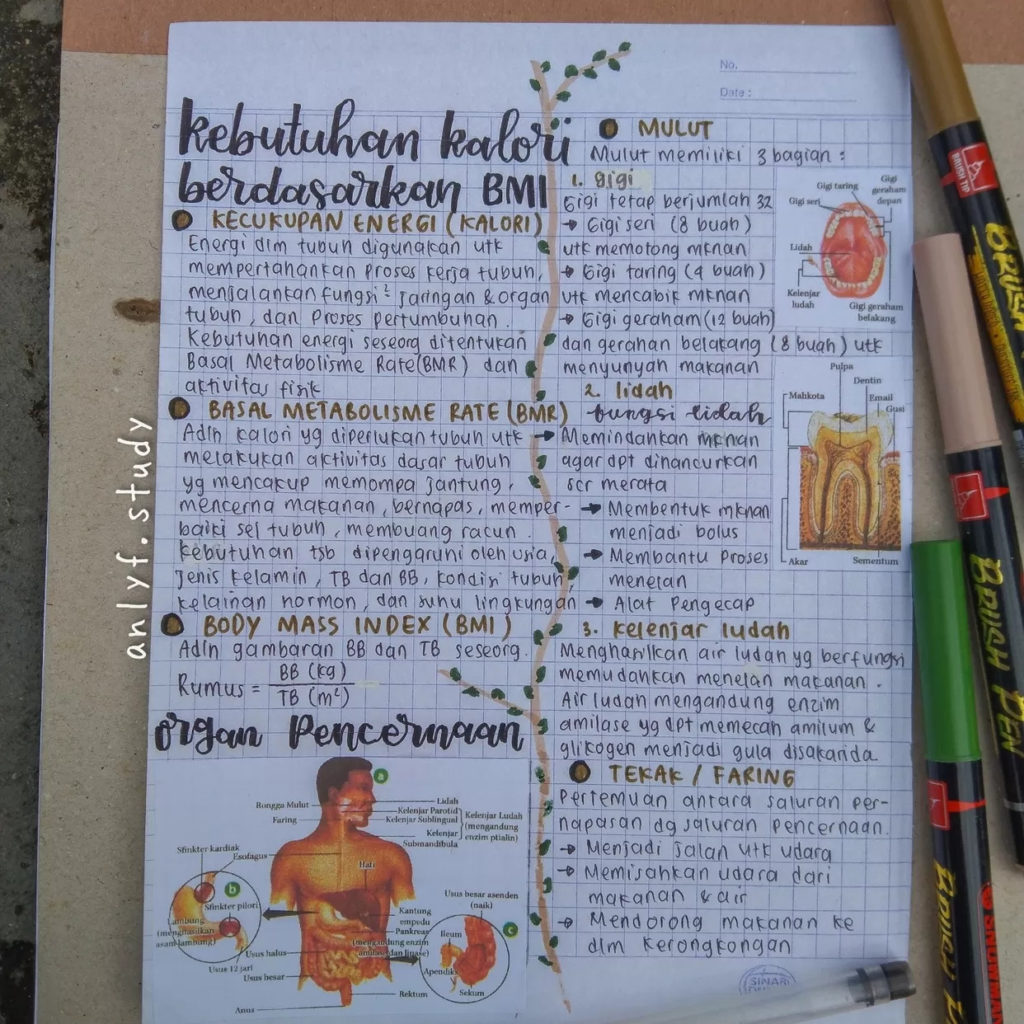 No.
Date :
kebutuhan kalori
berdasarkan BMI
KECUKUPAN ENERGI (KALORI)
Energi dlm tubuh digunakan utk
mempertahankan proses kerja tubuh,
menjalankan fungsi² jaringan & organ
tubuh, dan proses pertumbuhan.
Kebutuhan energi seseorg ditentukan
Basal Metabolisme Rate(BMR) dan
aktivitas fisik
BASAL METABOLISME RATE (BMR)
Adlh kalori yg diperlukan tubuh utk
melakukan aktivitas dasar tubuh
yg mencakup memompa jantung,
mencerna makanan, bernapas, memper-
baiki sel tubuh, membuang racun.
Kebutuhan tsb dipengaruhi oleh usia,
jenis kelamin, TB dan BB, kondisi tubuh
kelainan hormon, dan suhu lingkungan
BODY MASS INDEX (BMI)
Adlh gambaran BB dan TB seseorg.
Rumus = BB (kg)
TB (m²)
organ Pencernaan
a
Rongga Mulut
Faring
Lidah
Kelenjar Parotid
Kelenjar Sublingual
Kelenjar
Submandibula
Kelenjar Ludah
(mengandung
enzim ptialin)
Sfinkter kardiak
Esofagus
Hati
b
Sfinkter pilori
Lambung
(menghasilkan
asam lambung)
Usus halus
Usus 12 jari
Usus besar
Anus
Kantung
empedu
Pankreas
(mengandung enzim
amilase dan lipase)
Rektum
Usus besar asenden
(naik)
Ileum
c
Apendiks
Sekum
MULUT
Mulut memiliki 3 bagian :
1. gigi
Gigi tetap berjumlah 32
→ Gigi seri (8 buah)
utk memotong mknan
→ Gigi taring (4 buah)
utk mencabik mknan
→ Gigi geraham (12 buah)
dan gerahan belakang (8 buah) utk
menyunyah makanan
Gigi taring
Gigi
geraham
depan
Gigi seri
Lidah
Kelenjar
ludah
Gigi geraham
belakang
2. lidah
fungsi lidah
→ Memindahkan mknan
agar dpt dihancurkan
scr merata
→ Membentuk mknan
menjadi bolus
→ Membantu proses
menelan
→ Alat Pengecap
Pulpa
Dentin
Mahkota
Email
Gusi
Akar
Sementum
3. kelenjar ludah
Menghasilkan air ludah yg berfungsi
memudahkan menelan makanan.
Air ludah mengandung enzim
amilase yg dpt memecah amilum &
glikogen menjadi gula disakarida
TEKAK / FARING
Pertemuan antara saluran per-
napasan dg saluran pencernaan.
→ Menjadi jalan utk udara
→ Memisahkan udara dari
makanan & air
→ Mendorong makanan ke
dlm kerongkongan
SINAR
anlyf.study
BRUSH TIP
BRUSH
BRUSH PEN
BRUSH
SNOWMAN